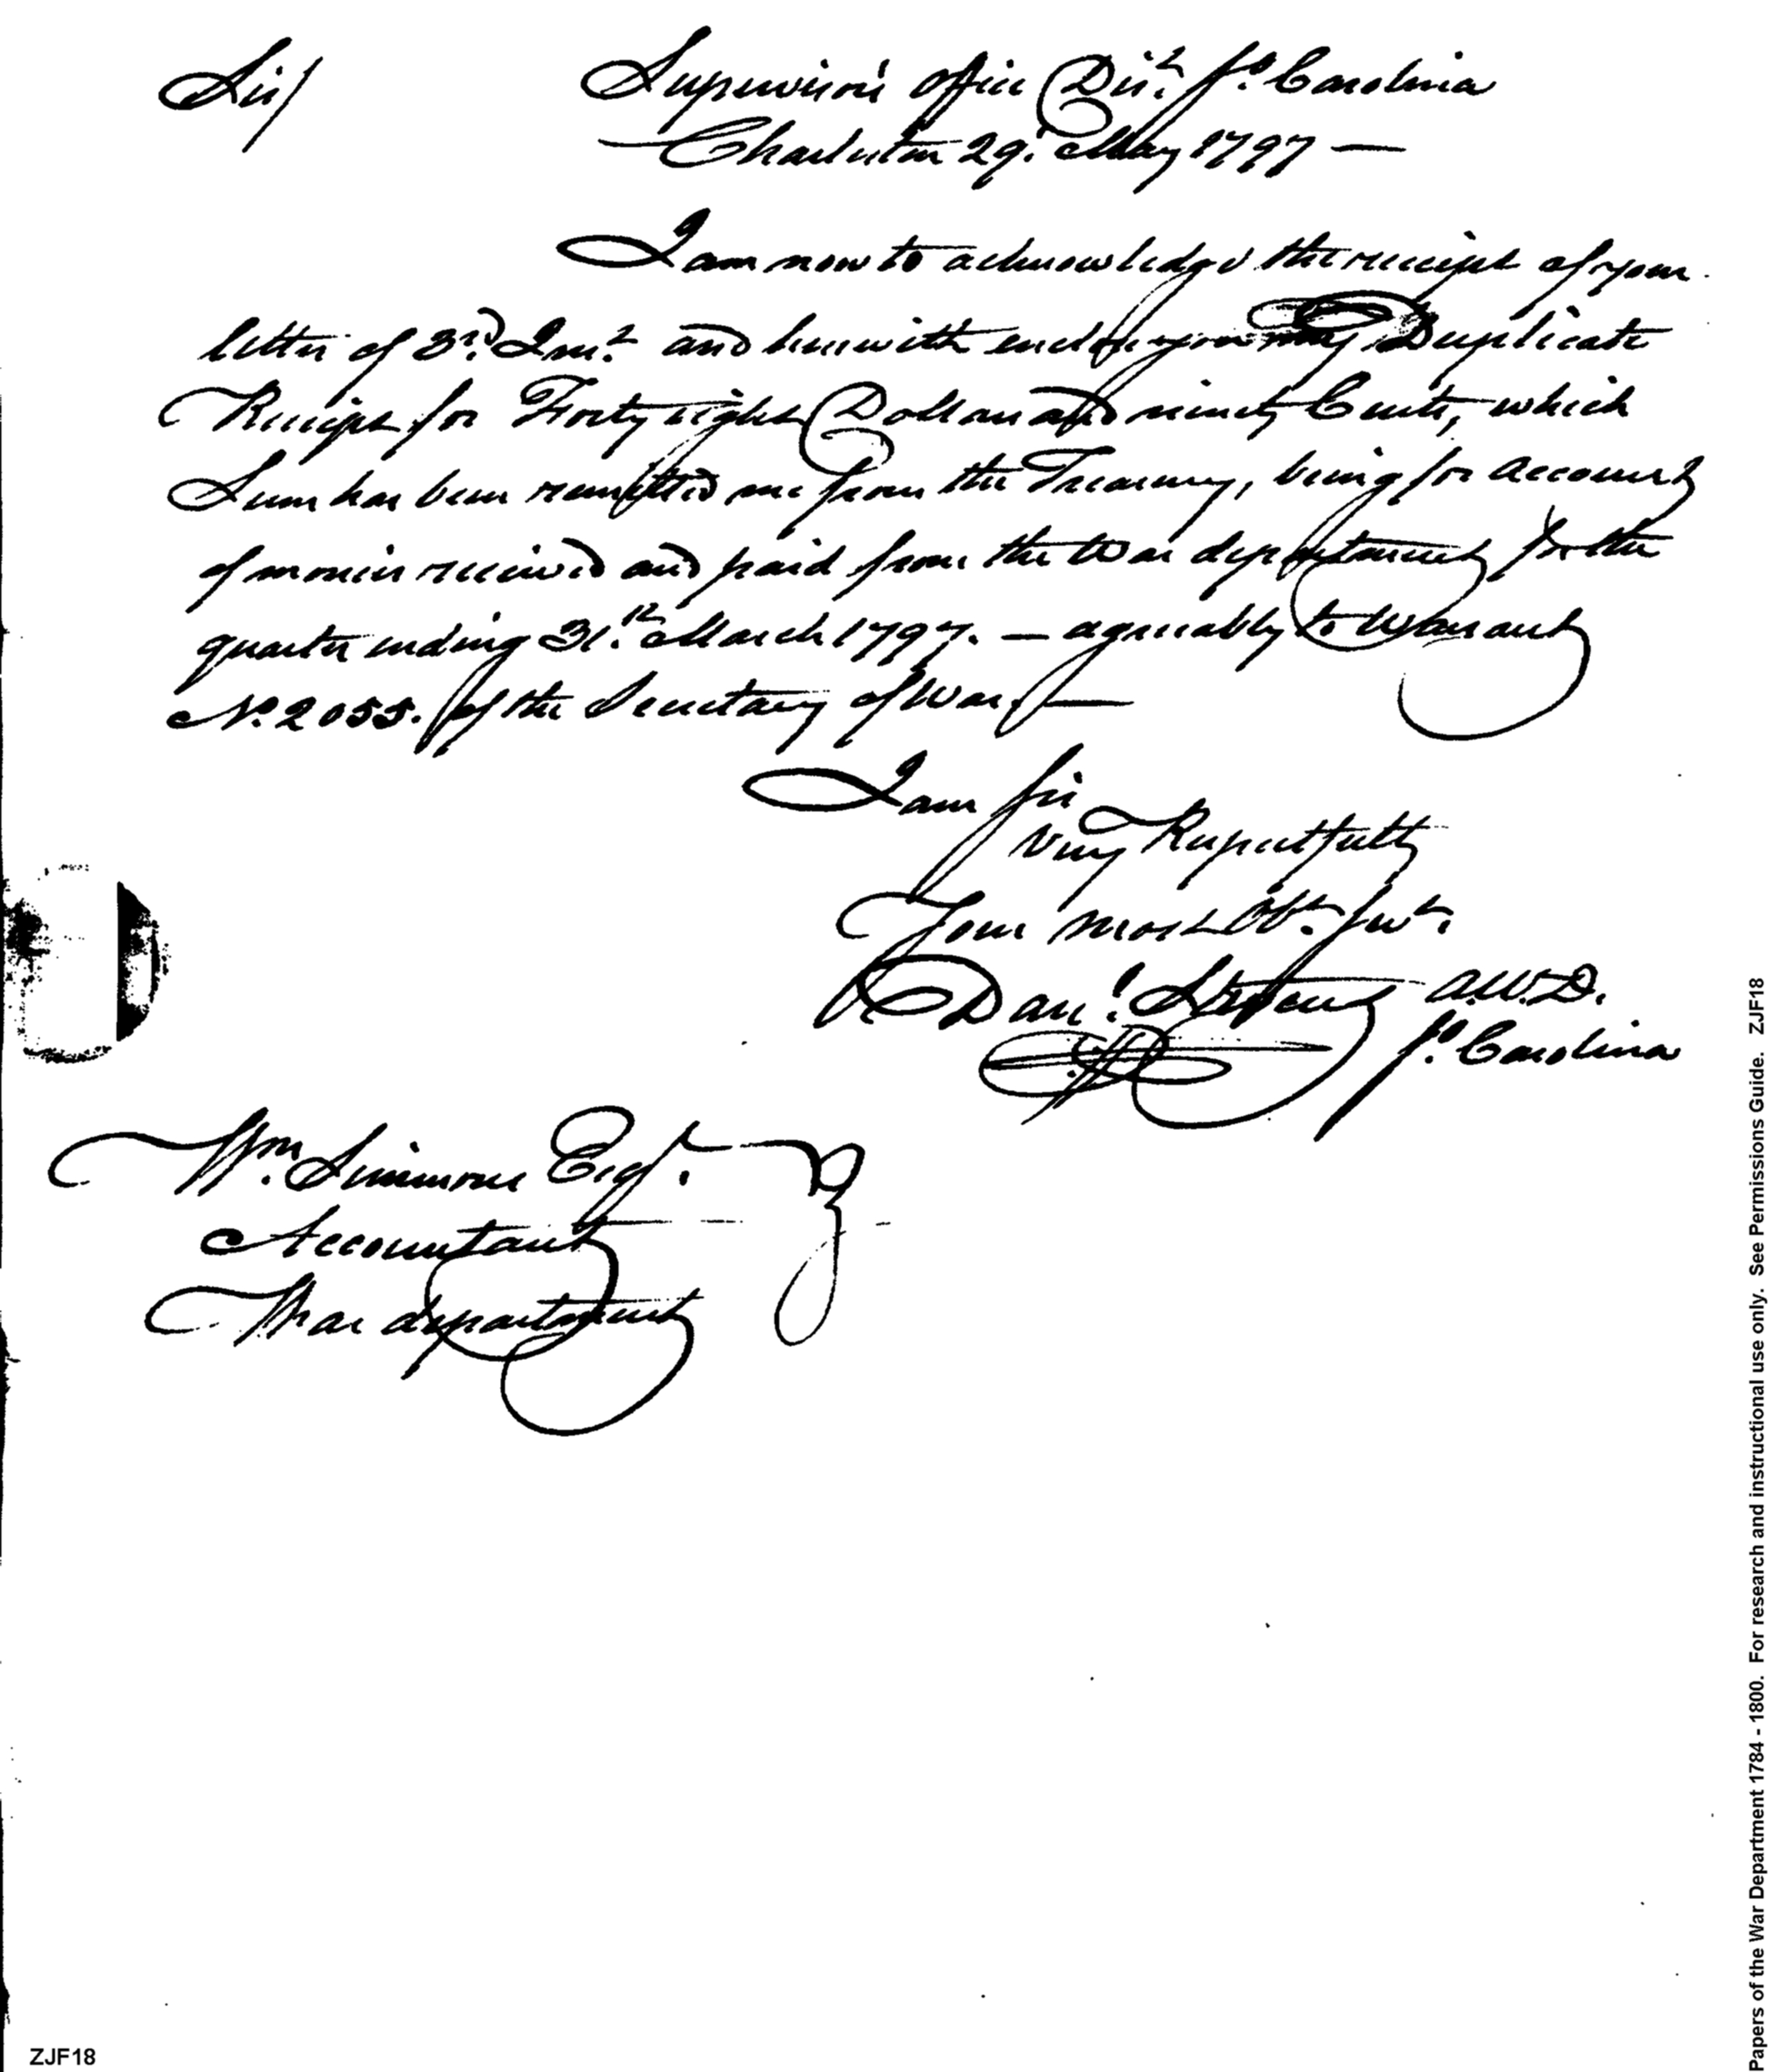 Sir/
Supervisors office Dist. So. Carolina
Charleston 29. May 1797 —
I am now to acknowledge the receipt of your
letter of 3rd. Inst. and herewith enclose you my Duplicate
Receipt for Forty eight Dollars and ninety Cents, which
Sum has been remitted me from the Treasury, being for account
of monies received and paid from the War department for the
quarter ending 31st. March 1797. — agreeably to Warrant
No. 2055. of the Secretary of War. —
I am Sir
Very Respectfully
Your most Obt. Servt.
Danl. Stevens A.W.D.
So. Carolina
Wm. Simmons Esqr.
Accountant
War department
ZJF18
Papers of the War Department 1784 - 1800. For research and instructional use only. See Permissions Guide. ZJF18